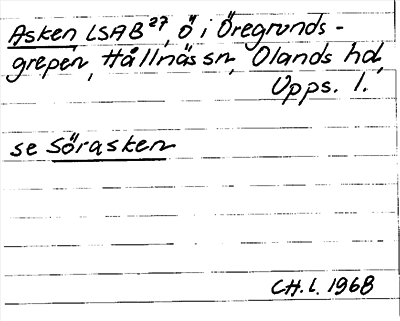 Asken LSAB 27, ö i Öregrunds-
grepen, Hållnäs sn, Olands hd,
Upps. l.
se Sörasken
CH.l. 1968